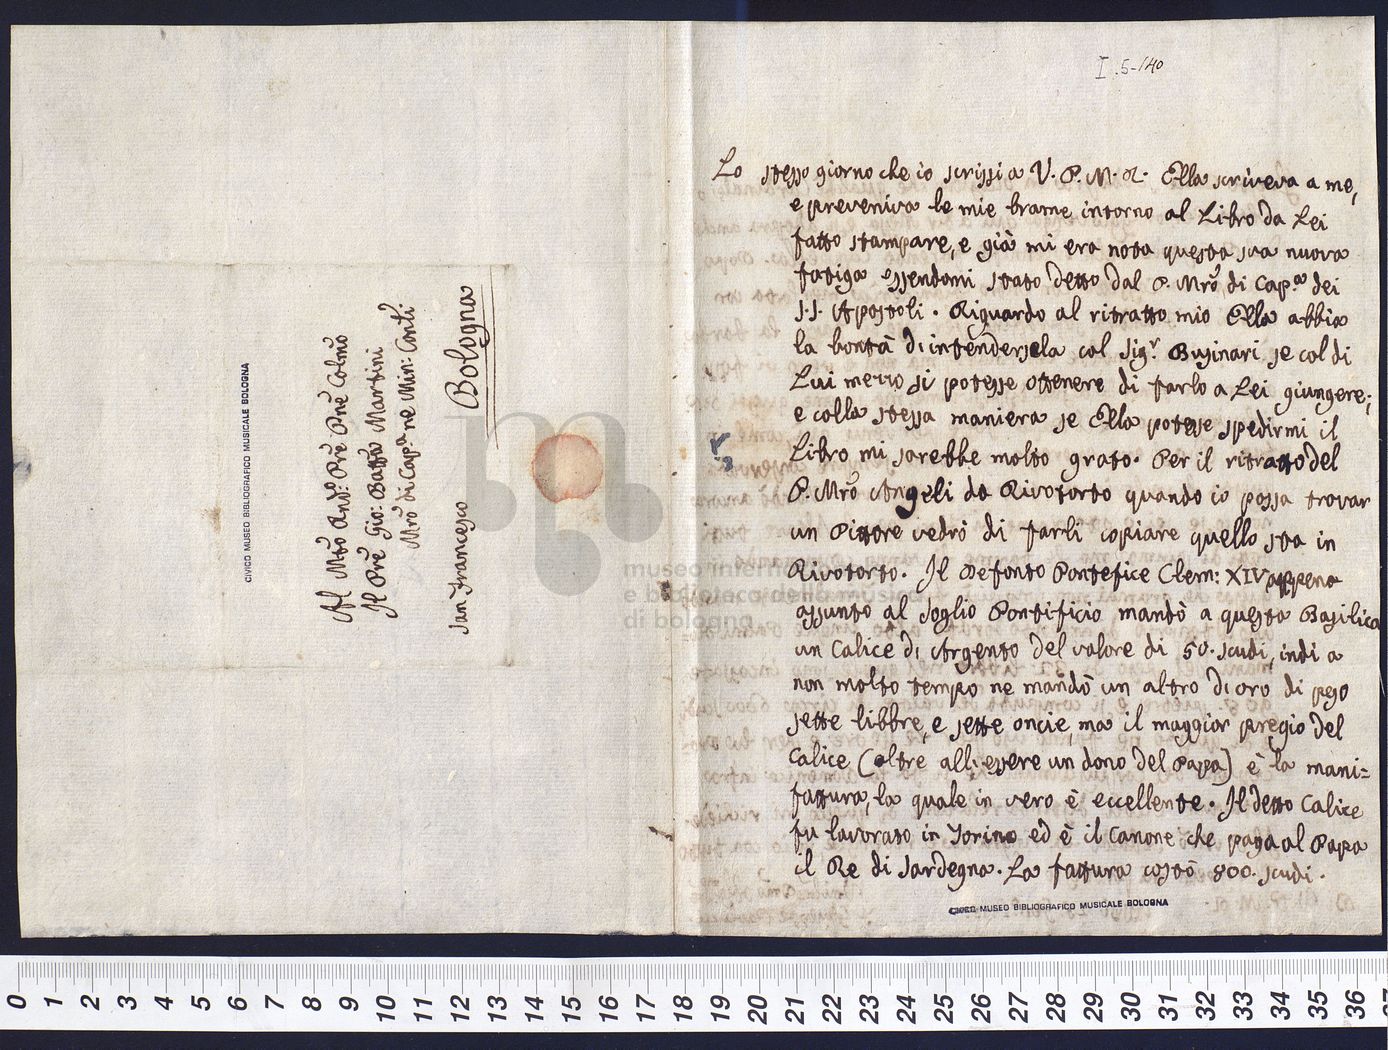 Al Mto Rndo: Pre Pne Colmo
Il Pre Gio: Batta Martini
Mro di Capa ne Min: Conti
San Francesco
Bologna
CIVICO MUSEO BIBLIOGRAFICO MUSICALE BOLOGNA
museo internazionale
e biblioteca della musica
di bologna
I.5-140
Lo stesso giorno che io scrissi a V. P. M. R. Ella scriveva a me,
e preveniva le mie brame intorno al Libro da Lei
fatto stampare, e già mi era nota questa sua nuova
fatiga essendomi stato detto dal P. Mro di Capa dei
S.S. Apostoli. Riguardo al ritratto mio Ella abbia
la bontà di intendersela col Sigr. Businari se col di
Lui mezzo si potesse ottenere di farlo a Lei giungere;
e colla stessa maniera se Ella potesse spedirmi il
Libro mi sarebbe molto grato. Per il ritratto del
P. Mro Angeli da Rivotorto quando io possa trovar
un Pittore vedrò di farli copiare quello sta in
Rivotorto. Il Defonto Pontefice Clem: XIV appena
assunto al Soglio Pontificio mandò a questa Basilica
un Calice di Argento del valore di 50. scudi, indi a
non molto tempo ne mandò un altro di oro di peso
sette libbre, e sette oncie, ma il maggior pregio del
Calice (oltre all'essere un dono del Papa) è la mani=
fattura, la quale in vero è eccellente. Il detto Calice
fu lavorato in Torino ed è il Canone che paga al Papa
il Re di Sardegna. La fattura costò 800. scudi.
CIVICO MUSEO BIBLIOGRAFICO MUSICALE BOLOGNA
0 1 2 3 4 5 6 7 8 9 10 11 12 13 14 15 16 17 18 19 20 21 22 23 24 25 26 27 28 29 30 31 32 33 34 35 36 37